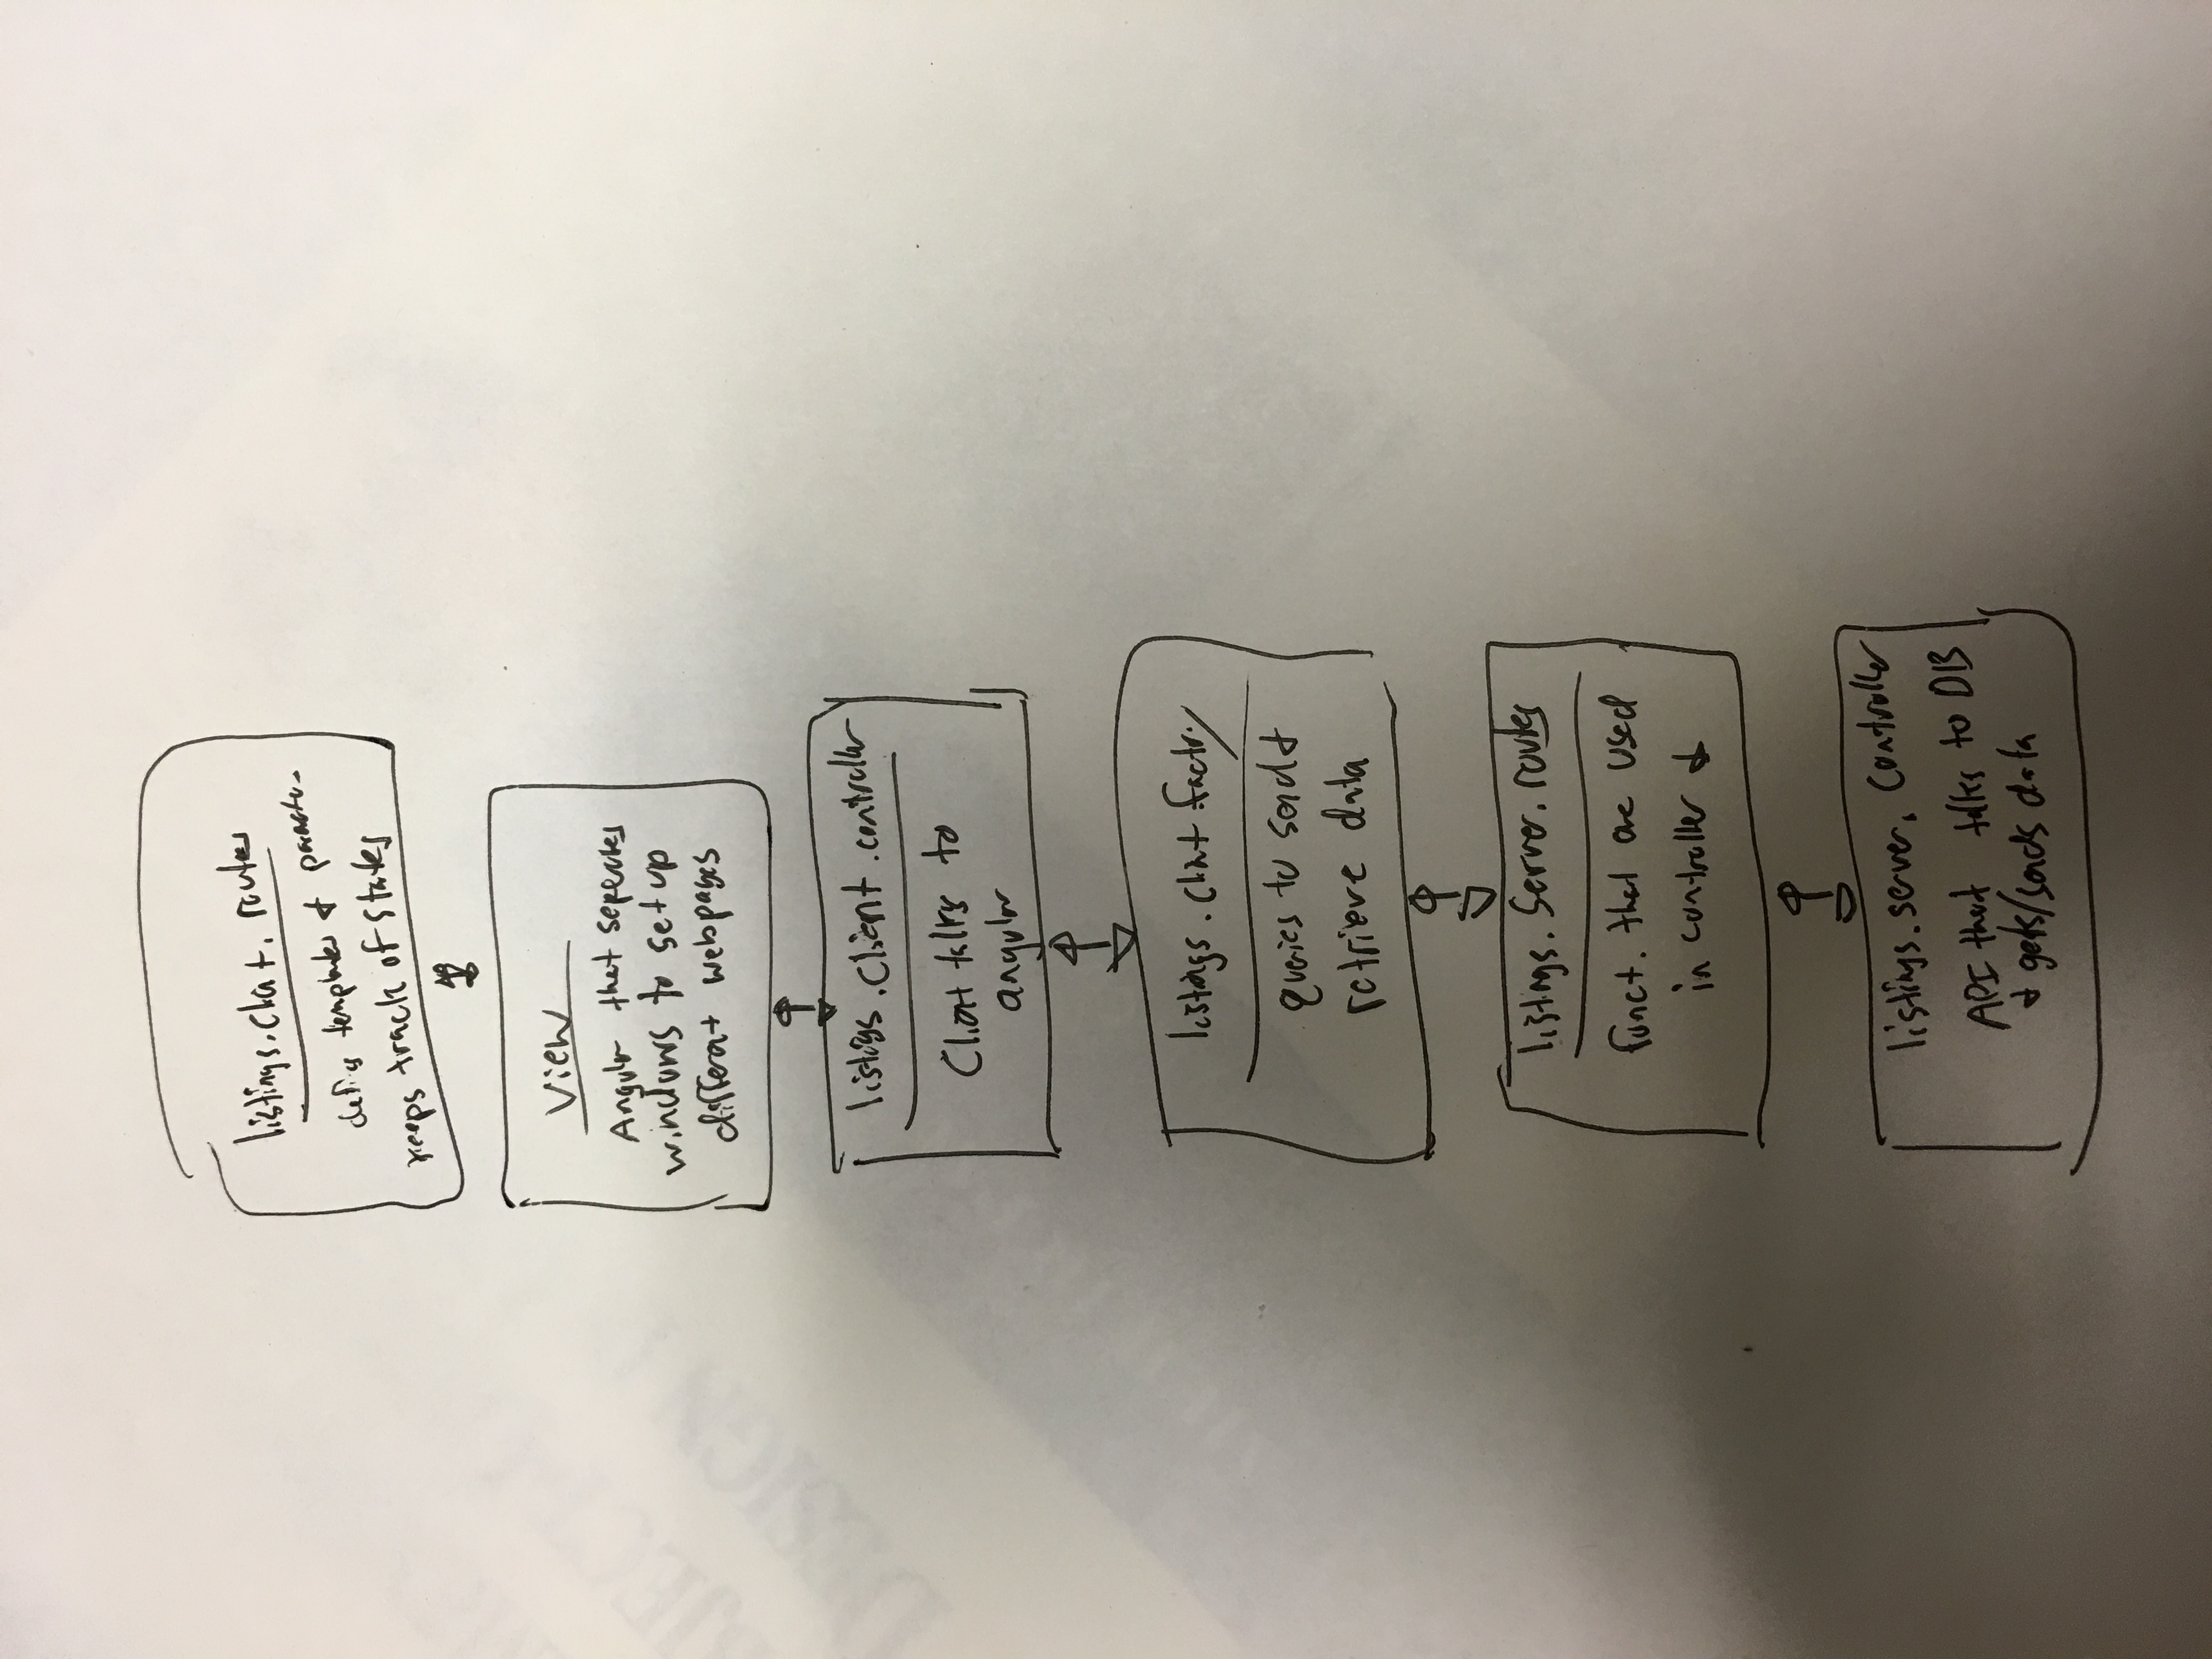 listings.client.routes
defines templates & parameter
keeps track of states
View
Angular that seperates
windows to set up
different webpages
listings.client.controller
Client talks to
angular
listings.client.factory
queries to send &
retrieve data
listings.server.routes
funct. that are used
in controller &
listings.server.controller
API that talks to DB
& gets/sends data
DESIGN